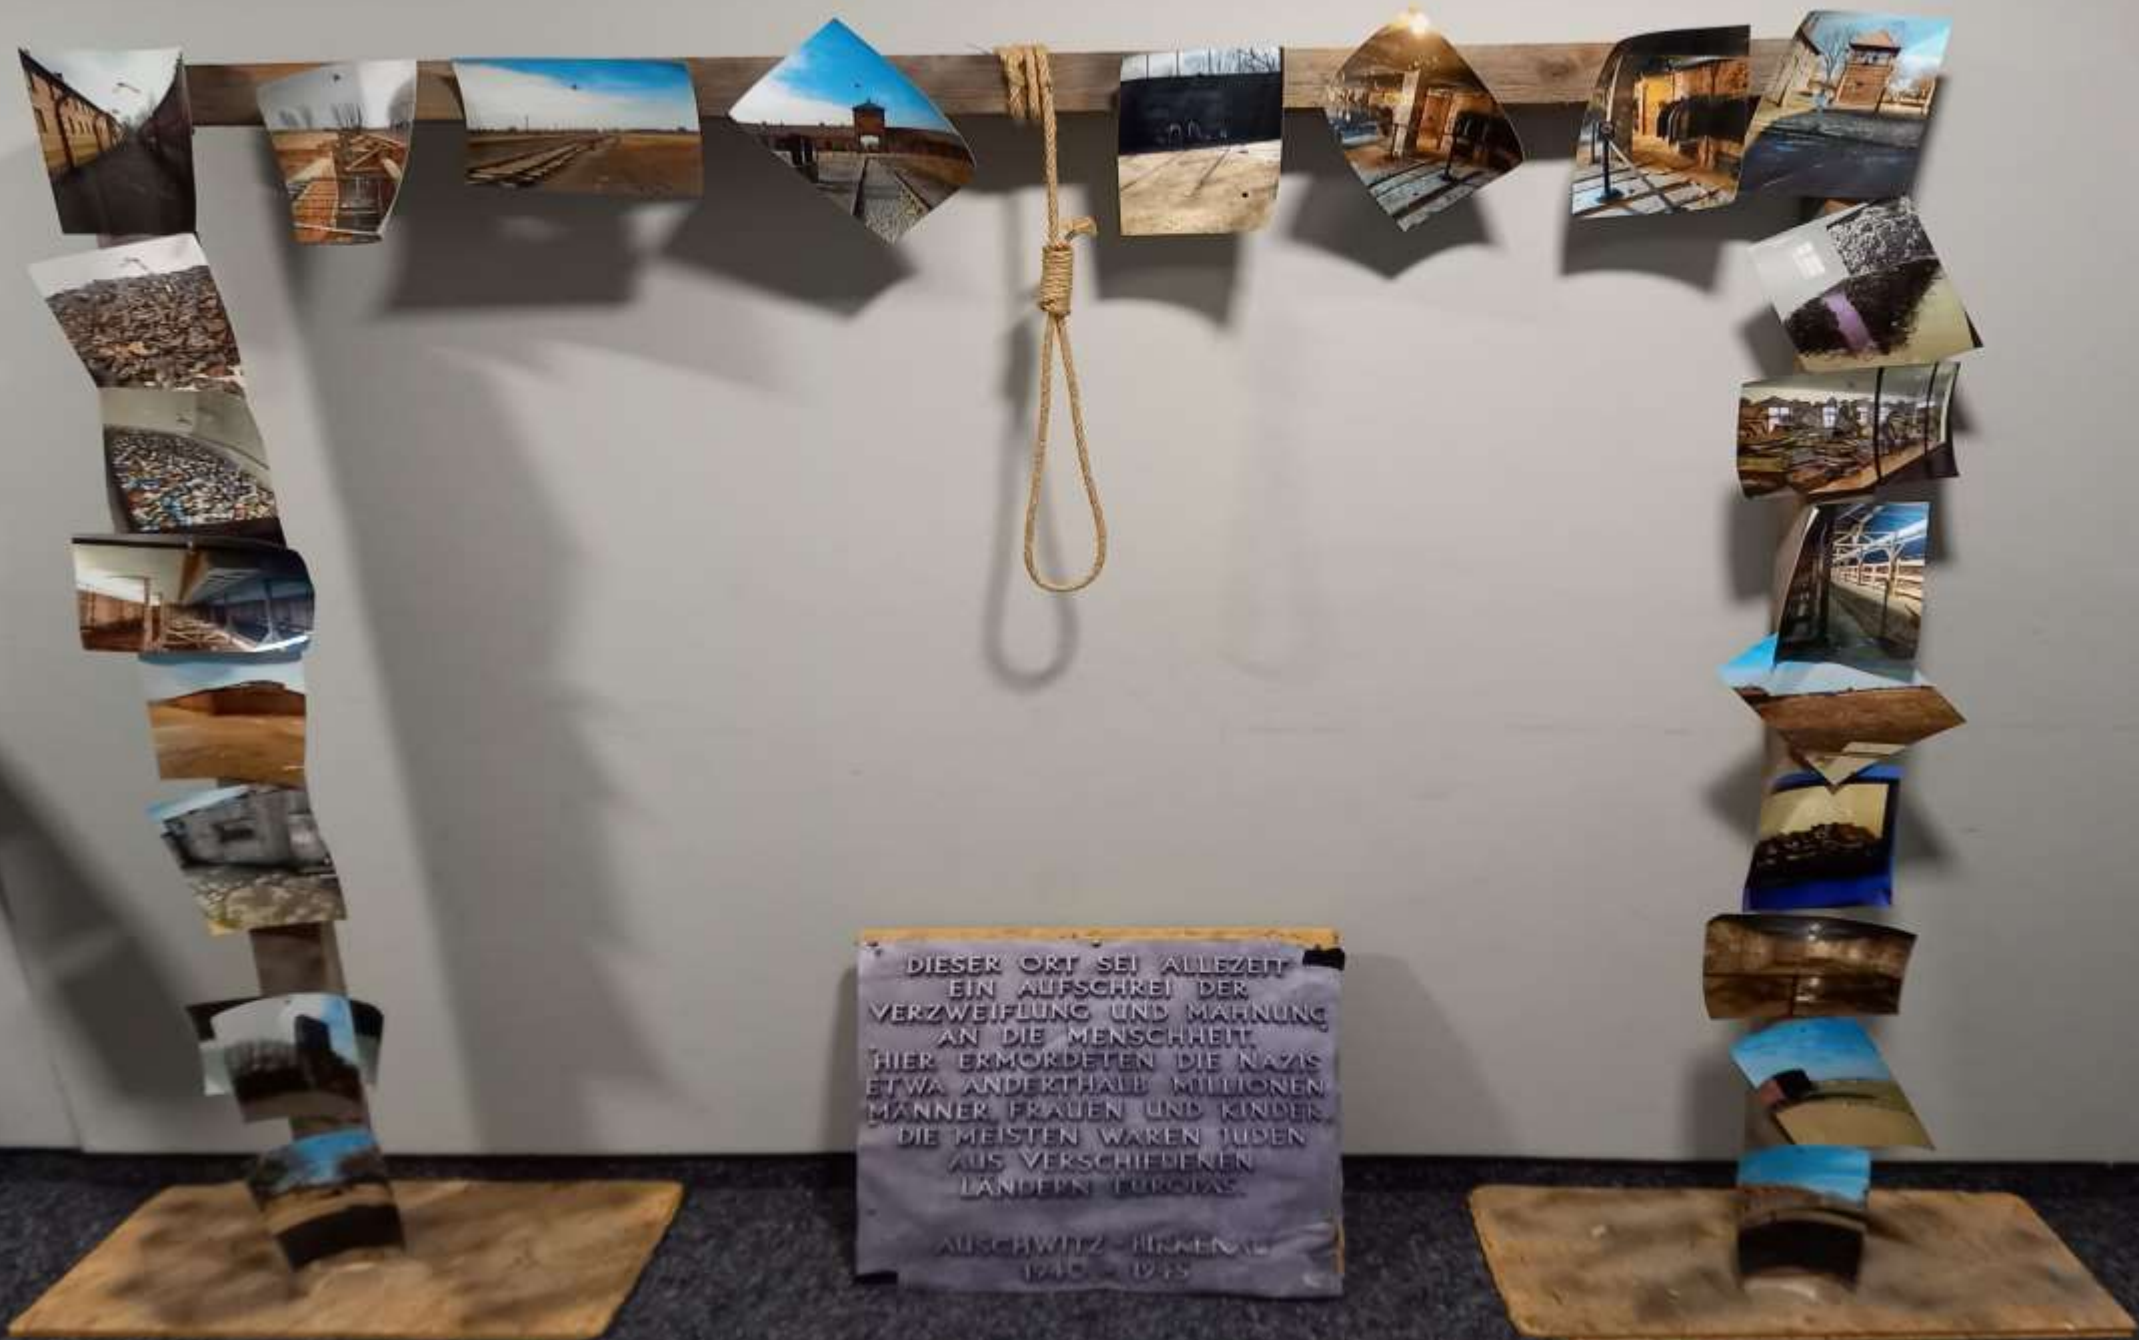 DIESER ORT SEI ALLEZEIT
EIN AUFSCHREI DER
VERZWEIFLUNG UND MAHNUNG
AN DIE MENSCHHEIT.
HIER ERMORDETEN DIE NAZIS
ETWA ANDERTHALB MILLIONEN
MÄNNER, FRAUEN UND KINDER.
DIE MEISTEN WAREN JUDEN
AUS VERSCHIEDENEN
LÄNDERN EUROPAS.
AUSCHWITZ - BIRKENAU
1940 - 1945